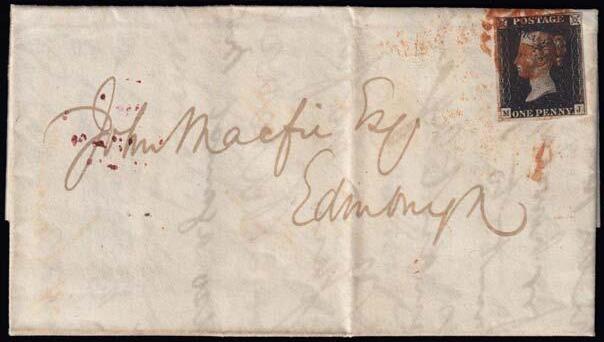 POSTAGE
M J
ONE PENNY
John Macfie Esq.
Edinburgh